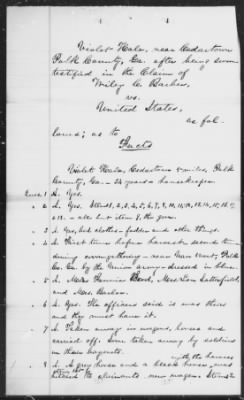 Violet Hale, near Cedartown
Polk County, Ga. after being sworn
testified in the Claim of
Wiley C. Barber
vs.
United States,
as fol
lows; as to
Facts
Violet Hale, Cedartown 8 miles, Polk
County, Ga - 34 years & housekeeper.
1 A. Yes.
2 A. Yes. Items 1, 2, 3, 4, 5, 6, 7, 8, 9, 10, 11, 12, 13, 14, 15, 16, 17
& 18. - all but item 9, the gun.
3 A. Yes, bed clothes - fodder and other things.
4 A. First time before harvest, second time
during corn gathering - near Van Wert, Polk
Co. Ga. by the Union army - dressed in blue.
5 A. Miss Fannie Mrs. Lou Satterfield
and Mrs. Barber.
6 A. Yes. The officers said it was theirs
and they must have it.
7 A. Taken away in wagons, horses and
carried off. Some taken away by soldiers
in their haversacks.
with the harness
8 A. A grey horse and a black horse, was
new wagon. Items